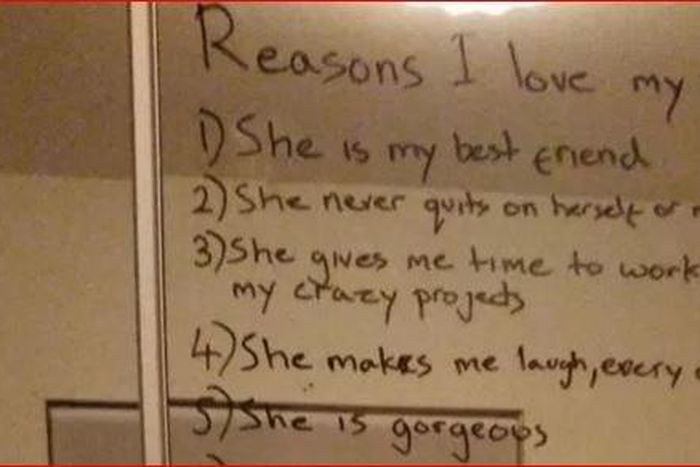 Reasons I love my
1) She is my best friend
2) She never quits on herself or
3) She gives me time to work
my crazy projects
4) She makes me laugh, every
5) She is gorgeous